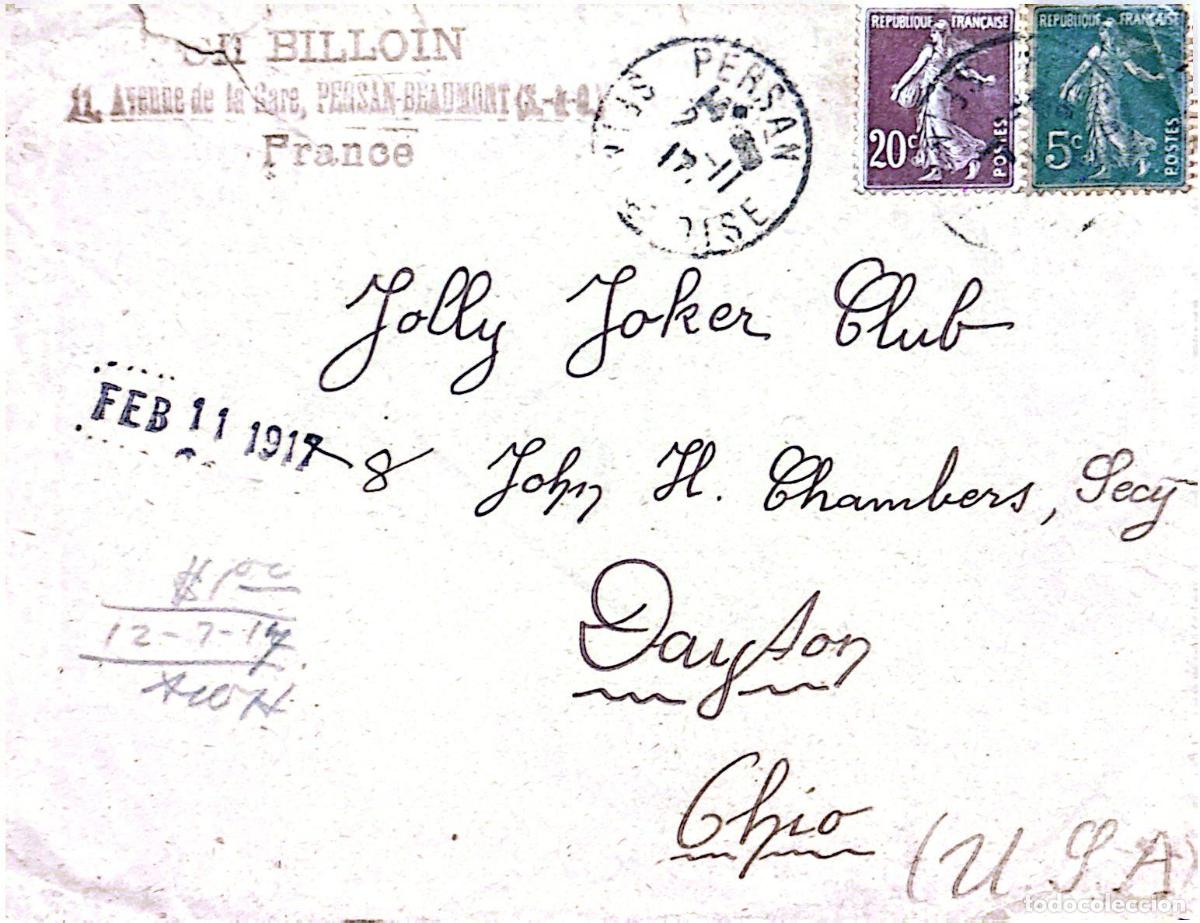 BILLOIN
11, Avenue de la Gare, PERSAN-BEAUMONT (S.-&-O.)
France
PERSAN
17 -11
OISE
REPUBLIQUE FRANÇAISE
20c
POSTES
REPUBLIQUE FRANÇAISE
5c
POSTES
Jolly Joker Club
FEB 11 1917
8 John H. Chambers, Secy
$1 00
12-7-17
Dayton
Ohio
(U.S.A)
todocoleccion